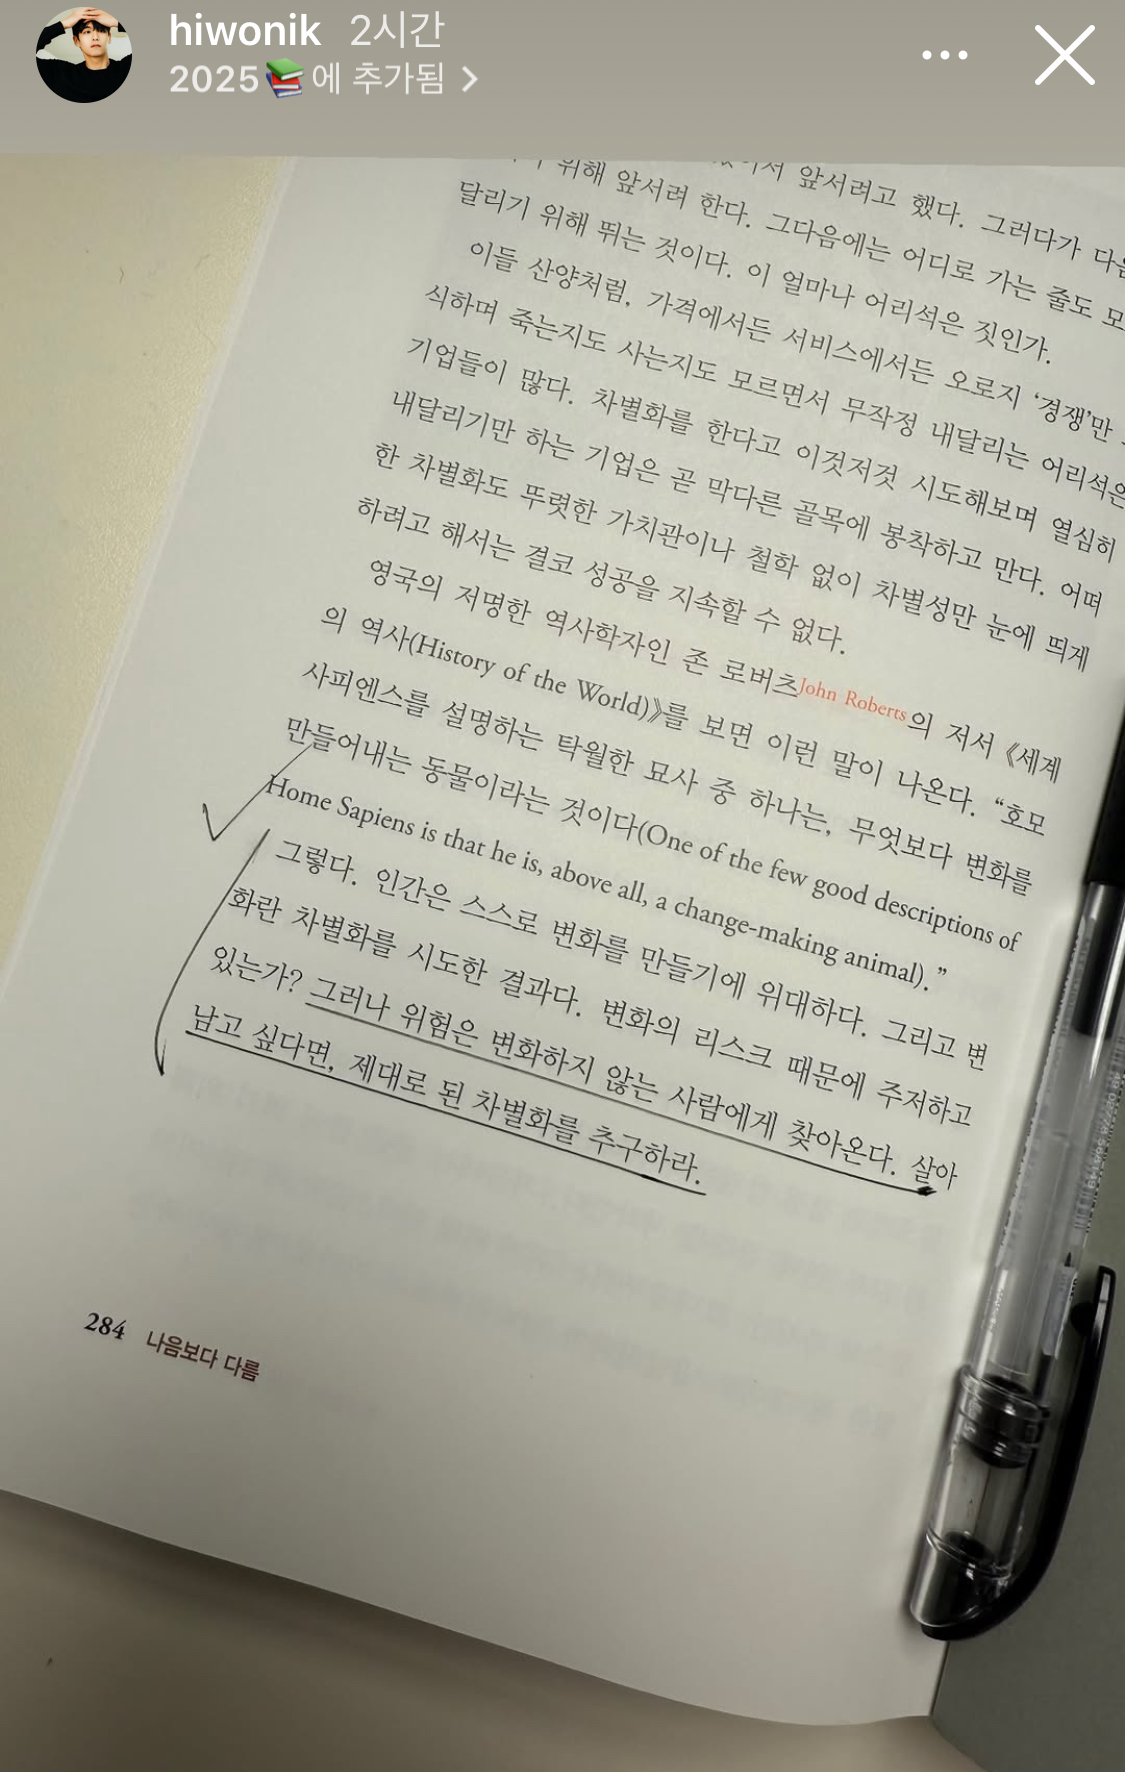 hiwonik 2시간
2025📚에 추가됨
위해 앞서려 앞서려고 했다. 그러다가
달리기 위해 뛰는 것이다. 한다. 그다음에는 어디로 가는 줄도
이 얼마나 어리석은 짓인가.
이들 산양처럼, 가격에서든 서비스에서든 오로지 ‘경쟁’만
식하며 죽는지도 사는지도 모르면서 무작정 내달리는 어리석은
기업들이 많다. 차별화를 한다고 이것저것 시도해보며 열심히
내달리기만 하는 기업은 곧 막다른 골목에 봉착하고 만다. 어떠
한 차별화도 뚜렷한 가치관이나 철학 없이 차별성만 눈에 띄게
하려고 해서는 결코 성공을 지속할 수 없다.
영국의 저명한 역사학자인 존 로버츠John Roberts의 저서 《세계
의 역사(History of the World)》를 보면 이런 말이 나온다. “호모
사피엔스를 설명하는 탁월한 묘사 중 하나는, 무엇보다 변화를
만들어내는 동물이라는 것이다(One of the few good descriptions of
Home Sapiens is that he is, above all, a change-making animal).”
그렇다. 인간은 스스로 변화를 만들기에 위대하다. 그리고 변
화란 차별화를 시도한 결과다. 변화의 리스크 때문에 주저하고
있는가? 그러나 위험은 변화하지 않는 사람에게 찾아온다. 살아
남고 싶다면, 제대로 된 차별화를 추구하라.
284 나음보다 다름